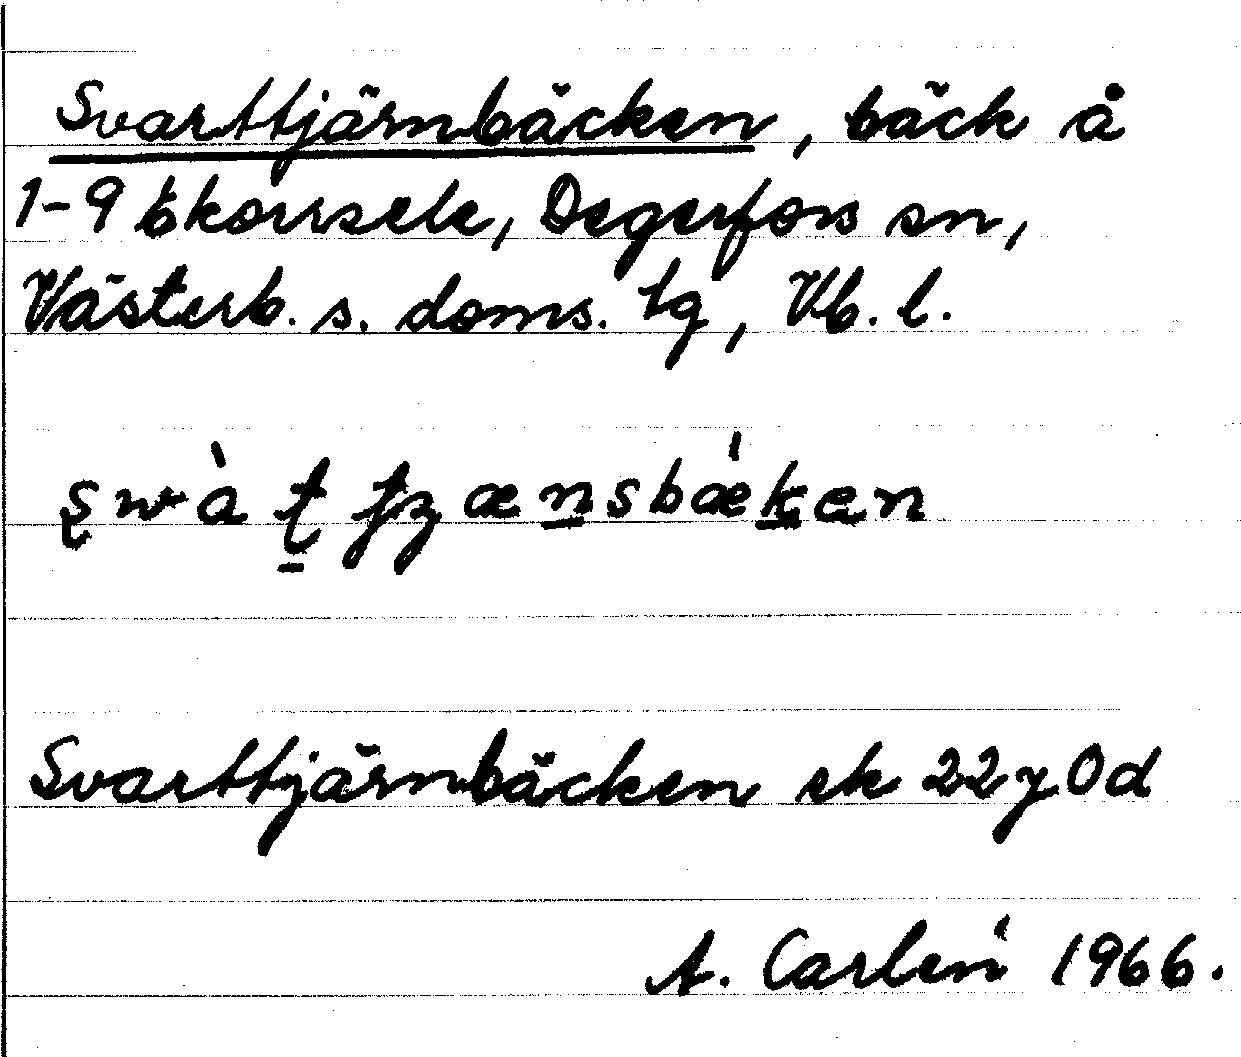 Svarttjärnbäcken, bäck å
1-9 Ekorrsele, Degerfors sn,
Västerb. s. doms. tg, Vb. l.
Svarttjärnbäcken ek 22 y 0 d
A. Carlén 1966.